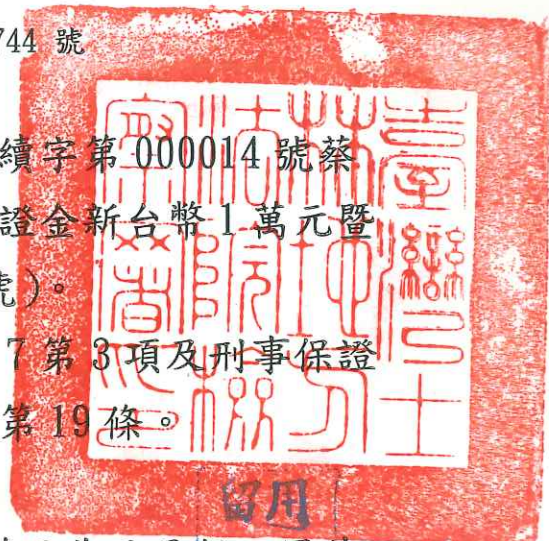 744 號
續字第 000014 號蔡
證金新台幣 1 萬元暨
號)。
7 第 3 項及刑事保證
第 19 條。
臺灣士
林地方
法院檢
察署印
留用